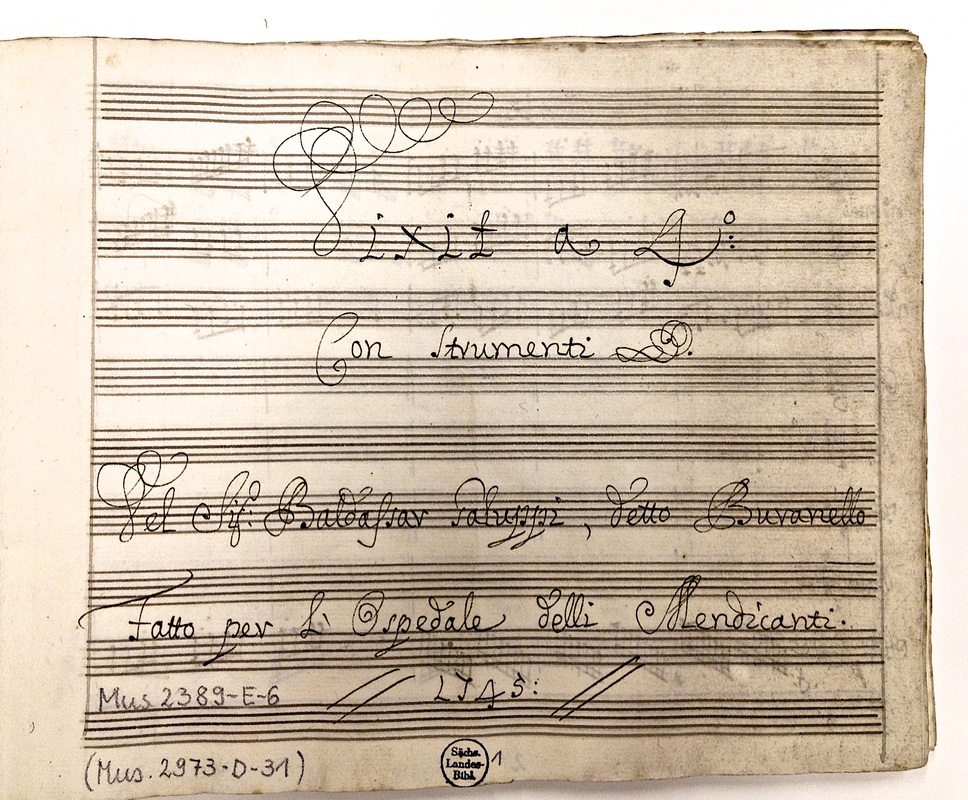 Dixit a 4:°
Con Strumenti
Del Sig: Baldassar Galuppi, detto Buranello
Fatto per L' Ospedale delli Mendicanti.
1745:
Mus 2389-E-6
(Mus. 2973-D-31)
Sächs.
Landes-
Bibl.
1